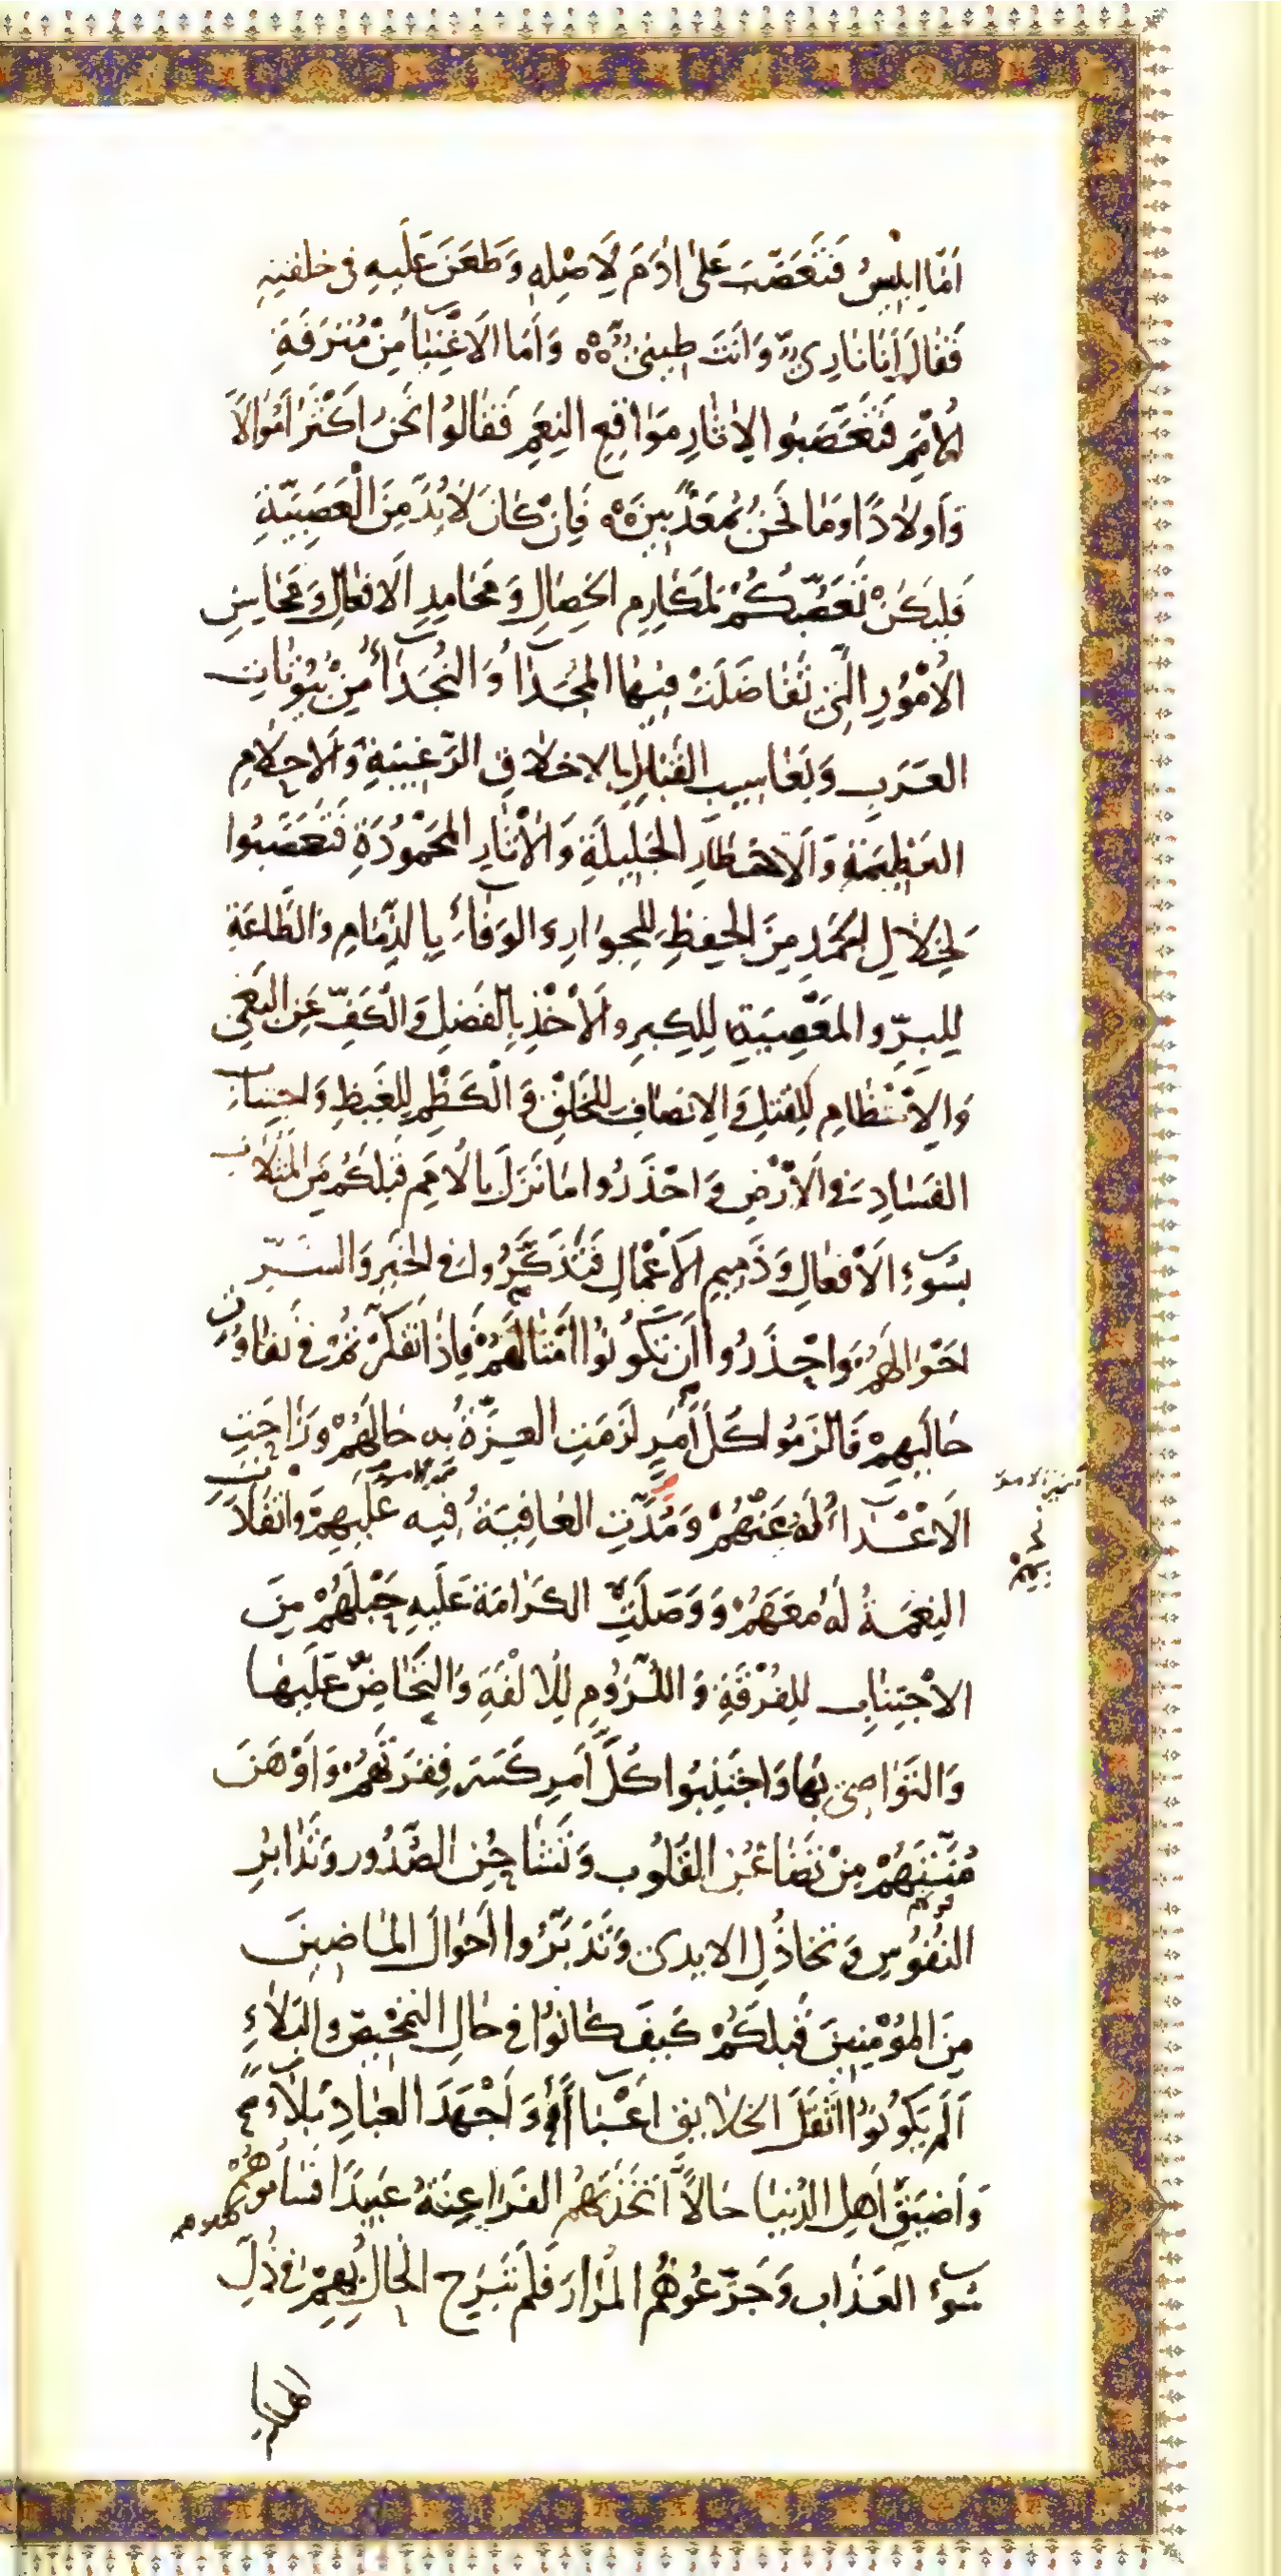 اَمّا اِبْلِیسُ فَتَعَصَّبَ عَلیٰ اٰدَمَ لِاَصْلِهِ وَ طَعَنَ عَلَیهِ فی خلقتِهِ
فَقٰالَ اَنَا نٰارِیٌّ وَ اَنْتَ طِینیٌّ وَ اَمَّا الْاَغْنِیٰاءُ مِنْ مُتْرَفَةِ
الْاُمَمِ فَتَعَصَّبُوا لِاٰثٰارِ مَوٰاقِعِ النِعَمِ فَقٰالُوا نَحْنُ اَکْثَرُ اَمْوٰالاً
وَ اَوْلٰادًا وَ مٰا نَحْنُ بِمُعَذَّبینَ فَاِنْ کٰانَ لٰابُدَّ مِنَ الْعَصَبِیَّةِ
فَلیَکُنْ تَعَصُّبُکُمْ لِمَکٰارِمِ الخِصٰالِ وَ مَحٰامِدِ الْاَفعٰالِ وَ مَحٰاسِنِ
الْاُمُورِ الَّتِی تَفٰاضَلَتْ فِیهَا الْمُجَدٰاءُ وَ النُجَدٰاءُ مِنْ بُیُوتٰاتِ
العَرَبِ وَ یَعٰاسِیبِ القَبٰایِلِ بِالاخلٰاقِ الرَّغِیبَةِ وَ الْاَحلٰامِ
العَظِیمَةِ وَ الْاَخْطٰارِ الجَلِیلَةِ وَ الْاٰثٰارِ المَحْمُودَةِ فَتَعَصَّبُوا
لِخِلٰالِ الحَمْدِ مِنَ الحِفظِ لِلجِوٰارِ وَ الوَفٰاءِ بِالذِّمٰامِ وَ الطّٰاعَةِ
لِلبِرِّ وَ المَعْصِیَةِ لِلکِبرِ وَ الْاَخْذِ بِالفَضلِ وَ الْکَفِّ عَنِ البَغْیِ
وَ الْاِعْظٰامِ لِلقَتلِ وَ الْاِنصٰافِ لِلخَلْقِ وَ الْکَظْمِ لِلغَیظِ وَ اجتِنٰابِ
الفَسٰادِ فِی الْاَرْضِ وَ احْذَرُوا مٰا نَزَلَ بِالْاُمَمِ قَبلَکُم مِنَ المَثُلٰاتِ
بِسُوءِ الْاَفْعٰالِ وَ ذَمِیمِ الْاَعْمٰالِ فَتَذَکَّرُوا فِی الخَیرِ وَ الشَّرِّ
اَحْوٰالَهُمْ وَ احْذَرُوا اَنْ تَکُونُوا اَمْثٰالَهُمْ فَاِذٰا تَفَکَّرْتُمْ فِی تَفٰاوُتِ
حٰالَیهِمْ فَالْزَمُوا کُلَّ اَمْرٍ لَزِمَتِ العِزَّةُ بِهِ حٰالَهُمْ وَ زٰاحَتِ
الْاَعْدٰاءُ لَهُ عَنْهُمْ وَ مُدَّتِ العٰافِیَةُ فِیه عَلَیهِمْ وَ انْقٰادَتِ
النِعْمَةُ لَهُ مَعَهُمْ وَ وَصَلَتِ الکَرٰامَة عَلَیهِ حَبْلَهُمْ مِنَ
الاْجتِنٰابِ لِلفُرْقَةِ وَ اللُّزُومِ لِلْاُلْفَةِ وَ التَّحٰاضِّ عَلَیهٰا
وَ التَوٰاصِی بِهٰا وَ اجْتَنِبُوا کُلَّ اَمرٍ کَسَرَ فِقرَتَهُمْ وَ اَوْهَنَ
مُنَّتَهُمْ مِنْ تَضٰاغُنِ القُلُوبِ وَ تَشٰاحُنِ الصُّدُورِ وَ تَدٰابُرِ
النُفُوسِ وَ تَخٰاذُلِ الایدِی وَ تَدَبَّرُوا اَحْوٰالَ المٰاضِینَ
مِنَ المُؤْمِنِینَ قَبلَکُمْ کَیفَ کٰانُوا فِی حٰالِ التَمْحِیصِ وَ البَلٰاءِ
اَلَم یَکُونُوا اَثْقَلَ الخَلٰایِقِ اَعْبٰاءً وَ اَجْهَدَ العِبٰادِ بَلٰاءً
وَ اَضیَقَ اَهلِ الدُنیٰا حٰالاً اتَّخَذَتْهُمُ الفَرٰاعِنَةُ عَبِیدًا فَسٰامُوهُمْ
سُوءَ العَذٰابِ وَ جَرَّعُوهُمُ المُرٰارَ فَلَم تَبْرَحِ الحٰالُ بِهِمْ فِی ذُلِّ
الهلکة